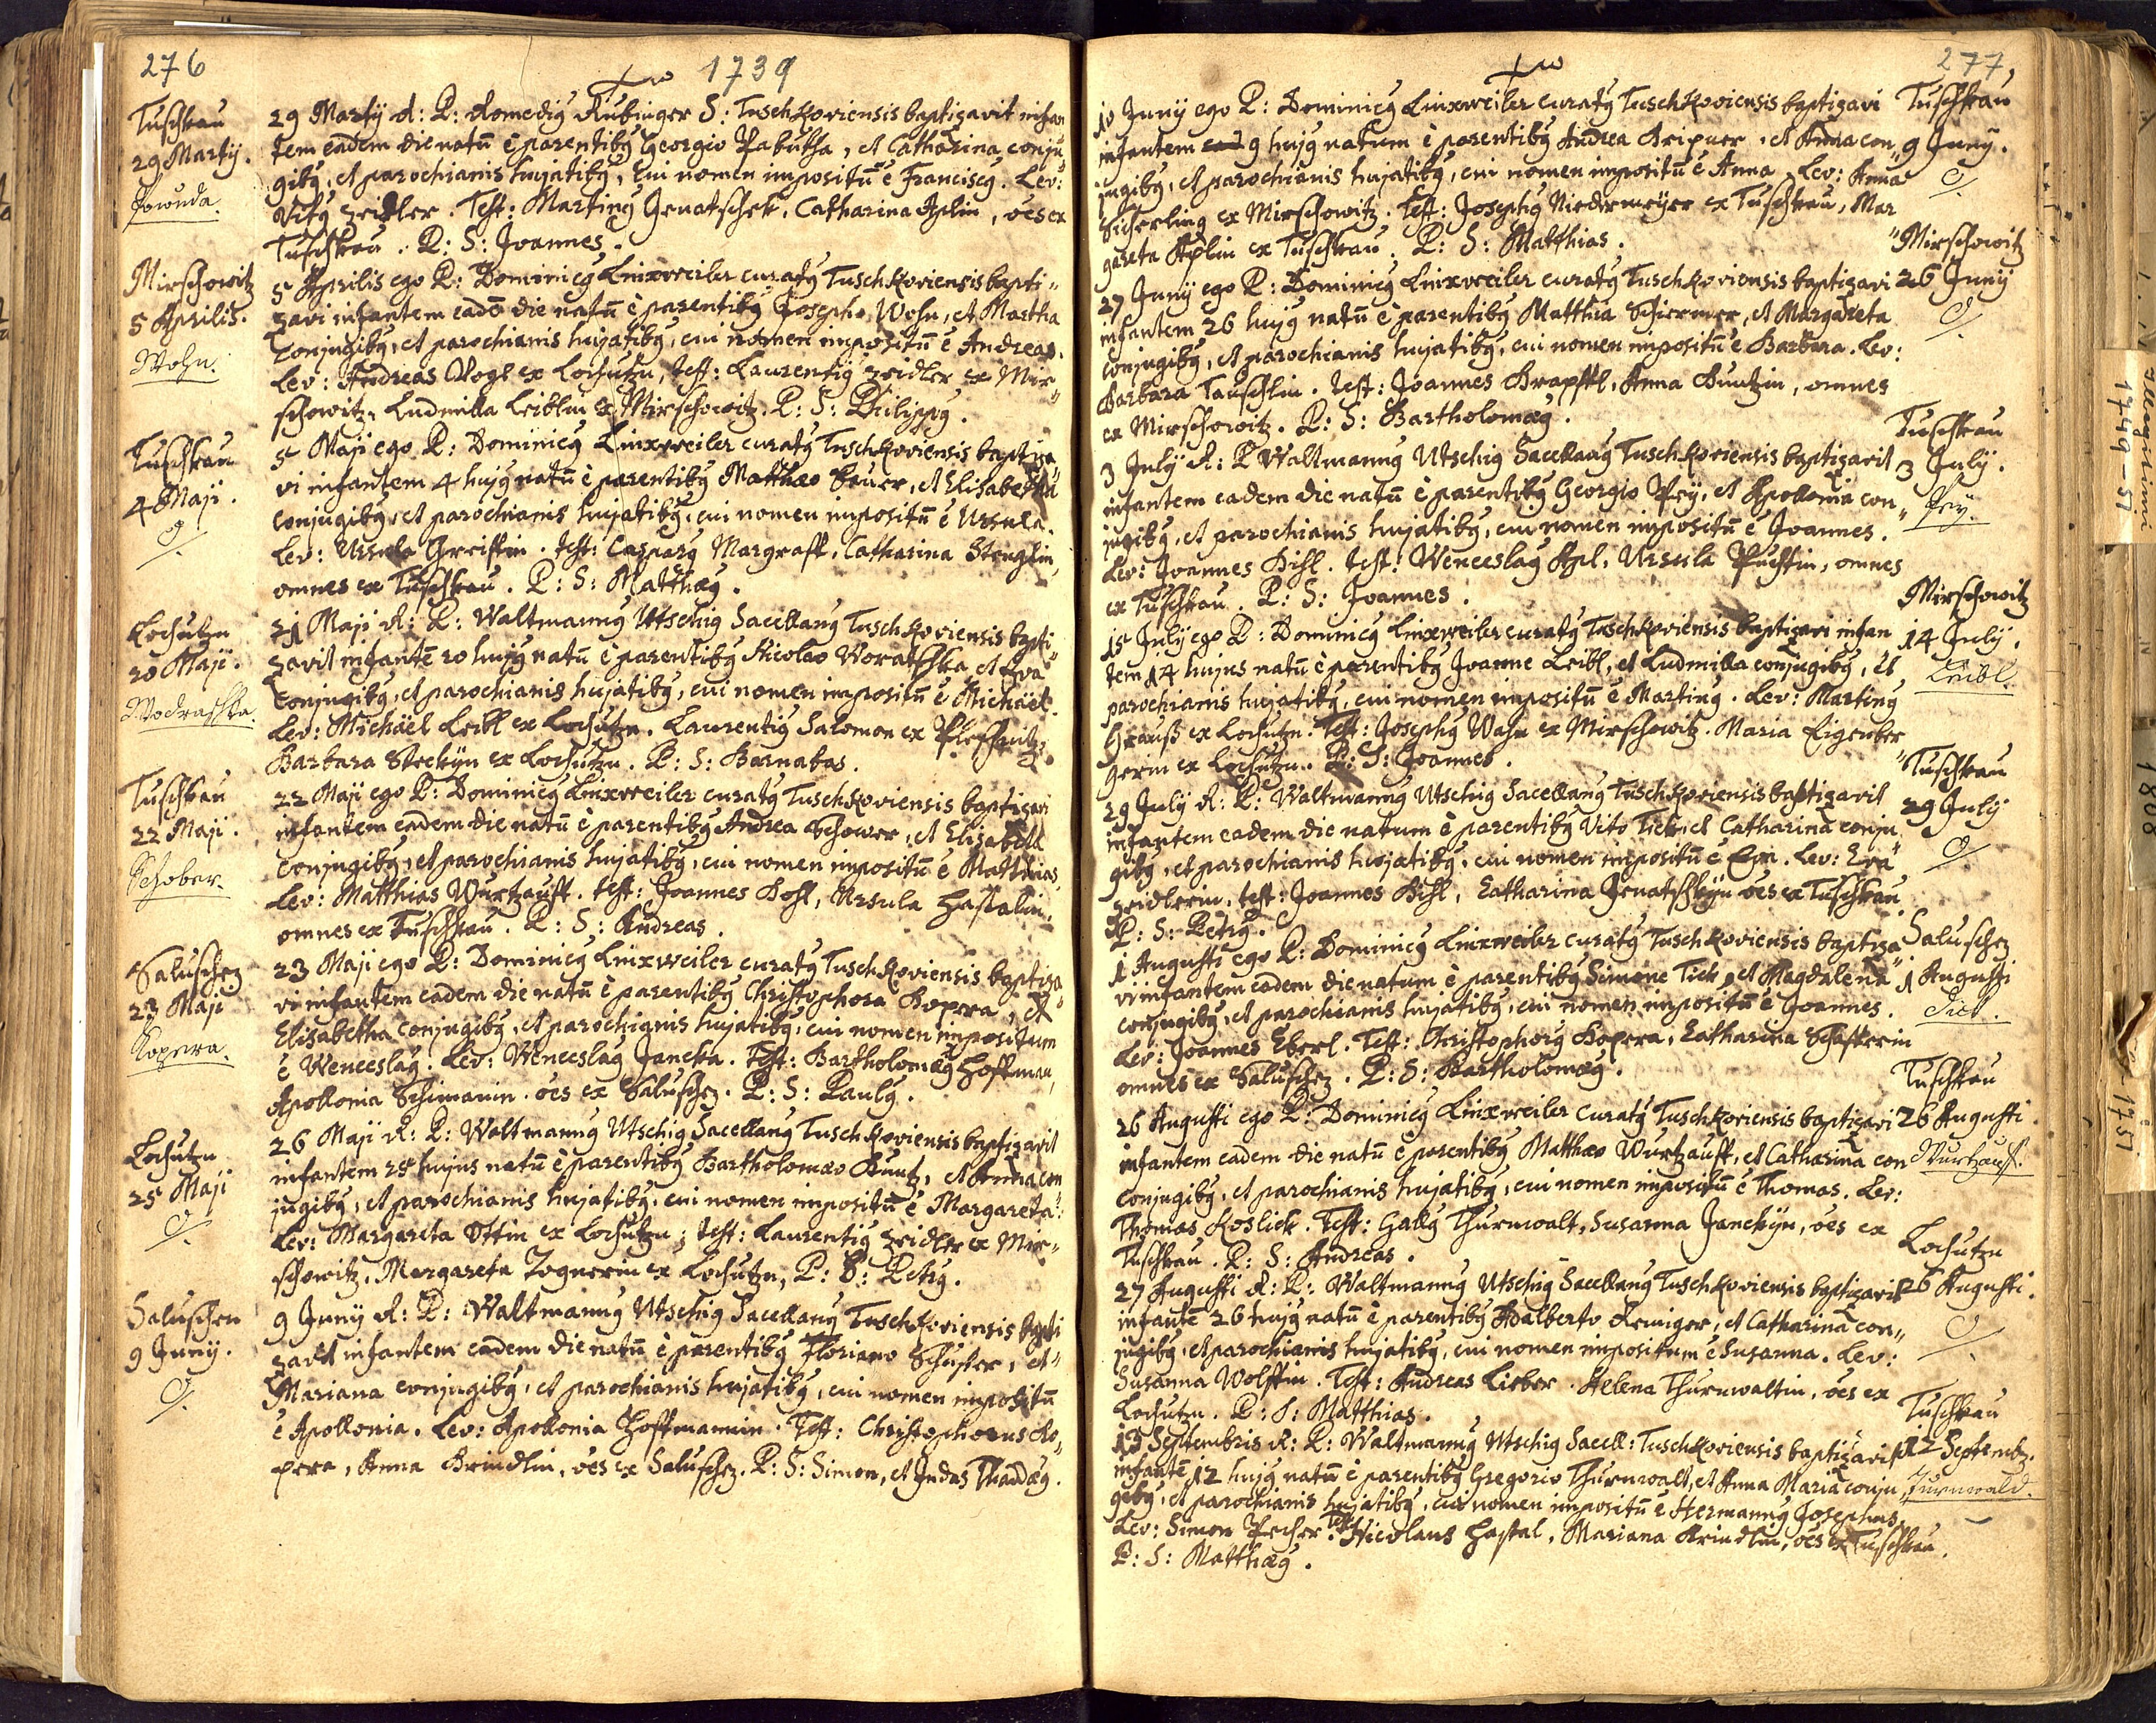 276
1739
Tuschkau
29 Martij.
29 Martij R: P: Romedig Aubinger S: Tuschkoviensis baptizavit infan
tem eadem die natū è parentibg Georgio Pabutha, et Catharina conju„
gibg, et parochianis hujatibg, cui nomen impositū ē Franciscg. Lev:
Vitg Zeidler. Test: Marting Jenatschek, Catharina Aplin, oēs ex
Tuschkau. P: S: Joannes.
Mirschowitz
5 Aprilis.
Wohn.
5 Aprilis ego P: Dominicg Linxweiler curatg Tuschkoviensis bapti„
zavi infantem eadē die natū è parentibg Josepho Wohn, et Martha
conjugibg, et parochianis hujatibg, cui nomen impositū ē Andreas.
Lev: Andreas Vogl ex Lochutzn, test: Laurentig Zeidler ex Mir„
schowitz, Ludmilla Leiblin ex Mirschowitz. P: S: Philippg.
Tuschkau
4 Maji.
5 Maji ego P: Dominicg Linxweiler curatg Tuschkoviensis baptiza
vi infantem 4 hujg natū è parentibg Matthæo Bauer, et Elisabetha
conjugibg, et parochianis hujatibg, cui nomen impositū ē Ursula.
Lev: Ursula Greiffin. Test: Casparg Margraff, Catharina Stenglin,
omnes ex Tuschkau. P: S: Matthæg.
Lochutzn
20 Maji.
Wodraschka.
21 Maji R: P: Waltmanng Utschig Sacellang Tuschkoviensis bapti„
zavit infantē 20 hujg natū è parentibg Nicolao Woratschka, et Eva
conjugibg, et parochianis hujatibg, cui nomen impositū ē Michäel.
Lev: Michäel Leibl ex Lochutzn. Laurentig Salomon ex
Barbara Steckÿn ex Lochutzn. P: S: Barnabas.
Tuschkau
22 Maji.
Schober.
22 Maji ego P: Dominicg Linxweiler curatg Tuschkoviensis baptizavi
infantem eadem die natū è parentibg Andrea Schower, et Elisabetha
conjugibg, et parochianis hujatibg, cui nomen impositū ē Matthias,
Lev: Matthias Wurtzauff. test: Joannes Bohl, Ursula Hastalin,
omnes ex Tuschkau. P: S: Andreas.
Saluschez
23 Maji
Kopera.
23 Maji ego P: Dominicg Linxweiler curatg Tuschkoviensis baptiza
vi infantem eadem die natū è parentibg Christophoro Kopera, et„
Elisabetha conjugibg, et parochianis hujatibg, cui nomen impositum
ē Wenceslag. Lev: Wenceslag Janeka. Test: Bartholomæg Hoffman,
Apollonia Schimanin. oēs ex Saluschez. P: S: Paulg.
Lochutzn
25 Maji
26 Maji R: P: Waltmanng Utschig Sacellang Tuschkoviensis baptizavit
infantem 25 hujus natū è parentibg Bartholomæo Kuntz, et Anna con
jugibg, et parochianis hujatibg, cui nomen impositū ē Margareta.
Lev: Margareta Ottin ex Lochutzn; test: Laurentig Zeidler ex Mir„
schowitz, Margareta Tognerin ex Lochutzn, P: S: Petrg.
Saluschen
9 Junij.
9 Junij R: P: Waltmanng Utschig Sacellang Tuschkoviensis bapti
zavit infantem eadem die natū è parentibg Floriano Schuster, et„
Mariana conjugibg, et parochianis hujatibg, cui nomen impositū
ē Apollonia. Lev: Apollonia Hoffmannin. Test: Christophorus Ko„
pera, Anna Brindlin, oēs ex Saluschez. P: S: Simon, et Judas Thadæg.
277
Tuschkau
9 Junij.
10 Junij ego P: Dominicg Linxweiler curatg Tuschkoviensis baptizavi
infantem 9 hujg natum è parentibg Andrea, et Anna con„
jugibg, et parochianis hujatibg, cui nomen impositū ē Anna, Lev: Anna
Sicherling ex Mirschowitz. Test: Josephg Niedermeÿer ex Tuschkau, Mar„
gareta Aplin ex Tuschkau. P: S: Matthias.
Mirschowitz
26 Junij
27 Junij ego P: Dominicg Linxweiler curatg Tuschkoviensis baptizavi
infantem 26 hujg natū è parentibg Matthia Schirmer, et Margareta
conjugibg, et parochianis hujatibg, cui nomen impositū ē Barbara. Lev:
Barbara Tauschlin. Test: Joannes Krapffl, Anna Kuntzin, omnes
ex Mirschowitz. P: S: Bartholomæg.
Tuschkau
3 Julij.
Peÿ.
3 Julij R: P Waltmanng Utschig Sacellang Tuschkoviensis baptizavit
infantem eadem die natū è parentibg Georgio Peÿ, et Apollonia con„
jugibg, et parochianis hujatibg, cui nomen impositū ē Joannes.
Lev: Joannes Bihl. Test: Wenceslag Apl, Ursula Puchtin, omnes
ex Tuschkau. P: S: Joannes.
Mirschowitz
14 Julij.
Leibl.
15 Julij ego P: Dominicg Linxweiler curatg Tuschkoviensis baptizavi infan
tem 14 hujus natū è parentibg Joanne Leibl, et Ludmilla conjugibg, et
parochianis hujatibg, cui nomen impositū ē Marting. Lev: Marting
Grauß ex Lochutzn. Test: Josephg Wahn ex Mirschowitz. Maria Eigenber„
gerin ex Lochutzn. P: S: Joannes.
Tuschkau
29 Julij
29 Julij R: P: Waltmanng Utschig Sacellang Tuschkoviensis baptizavit
infantem eadem die natum è parentibg Vito Tick, et Catharina conju„
gibg, et parochianis hujatibg, cui nomen impositū ē Eva. Lev: Eva
Zeidlerin, test: Joannes Bihl, Catharina Jenatschkÿn oēs ex Tuschkau
P: S: Petrg.
Saluschez
1 Augusti
Tick.
1 Augusti ego P: Dominicg Linxweiler curatg Tuschkoviensis baptiza„
vi infantem eadem die natum è parentibg Simone Tick, et Magdalena
conjugibg, et parochianis hujatibg, cui nomen impositū ē Joannes.
Lev: Joannes Eberl. Test: Christophorg Kopera, Catharina Schafferin
omnes ex Saluschez. P: S: Bartholomæg.
Tuschkau
26 Augusti.
Wurtzauf.
26 Augusti ego P: Dominicg Linxweiler curatg Tuschkoviensis baptizavi
infantem eadem die natū è parentibg Matthæo Wurtzauff, et Catharina con
conjugibg, et parochianis hujatibg, cui nomen impositū ē Thomas. Lev:
Thomas Koslick. Test: Gallg Thurnwalt, Susanna Janekÿn, oēs ex
Tuschkau. P: S: Andreas.
Lochutzn
26 Augusti.
27 Augusti R: P: Waltmanng Utschig Sacellang Tuschkoviensis baptizavit
infantē 26 hujg natū è parentibg Adalberto Reiniger, et Catharina con„
jugibg, et parochianis hujatibg, cui nomen impositum ē Susanna. Lev:
Susanna Wolffin. Test: Andreas Lieber. Helena Thurnwaltin, oēs ex
Lochutzn. P: S: Matthias.
Tuschkau
12 Septembr.
Turnwald.
13 Septembris R: P: Waltmanng Utschig Sacell: Tuschkoviensis baptizavit
infantē 12 hujg natū è parentibg Gregorio Thurnwalt, et Anna Maria conju„
gibg, et parochianis hujatibg, cui nomen impositū ē Hermanng Josephus,
Lev: Simon Pecher. Test: Nicolaus Hastal, Mariana Brindlin, oēs ex Tuschkau.
P: S: Matthæg.
1749-51
1808
-1751